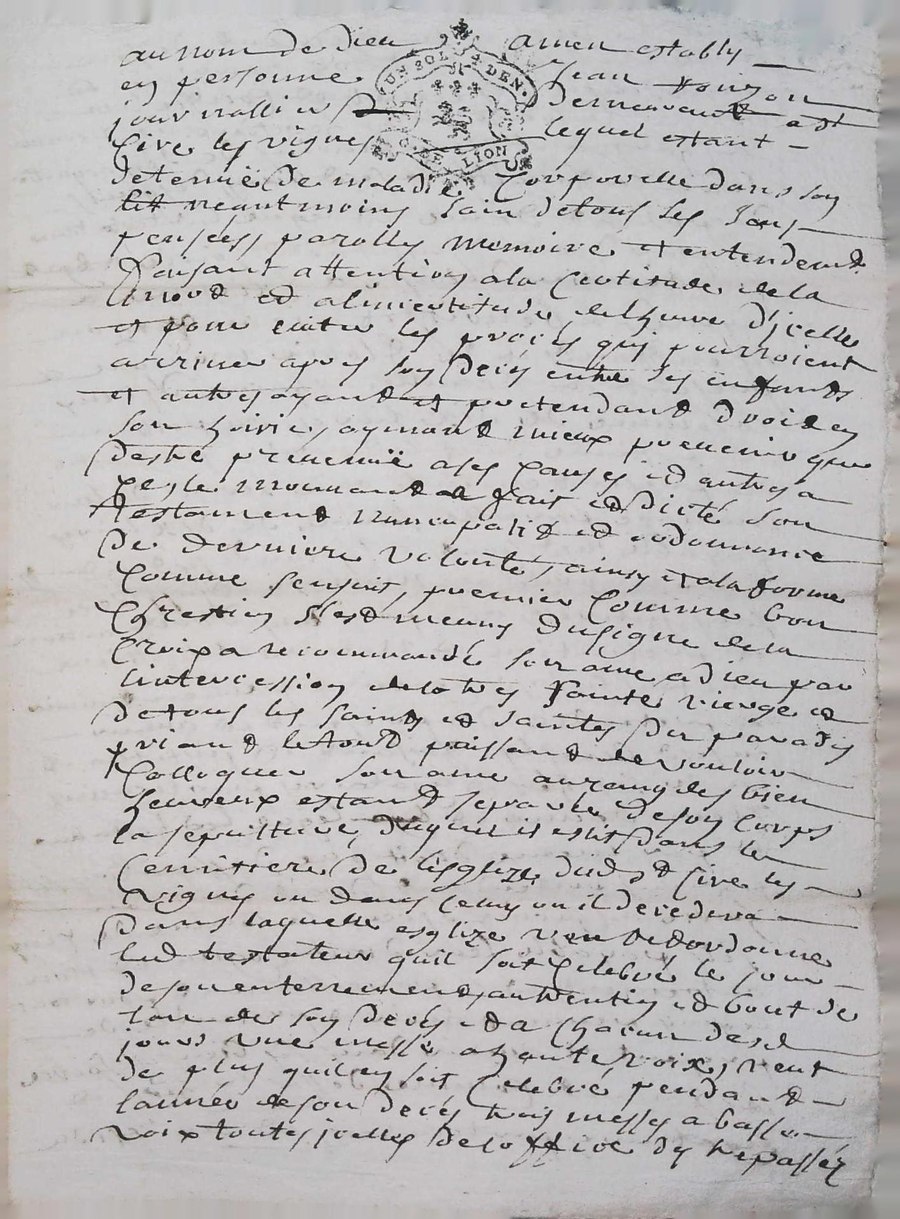 au nom de Dieu amen estably
UN SOL DEN
en personne Jean
journallier demeurant a St
G. DE LION
Cire les vignes lequel estant
detenue de maladie Corporelle dans son
lit neantmoins sain de tous ses sens
pensées, parolles memoire et entendemt
faisant attention a la Certitude de la
mord et a lincertitude de lheure dicelle
et pour eviter les procés qui pourroient
arriver apres son decés entre ses enfants
et autres ayant et pretendant droid en
son hoirie, aymant mieux prevenir que
destre prevenüe a ses causes et autres a
ce le mouvant a fait et dicté son
testament nuncupatif et ordonnance
de derniere volonté, ainsy et a la forme
Comme sensuit, premier Comme bon
Chrestien sest muny du signe de la
Croix a recommandé son ame a dieu par
lintercession de la tres sainte vierge et
de tous les saints et saintes du paradis
priant le tout puissant de vouloir
Colloquer son ame au rang des bien
heureux estant separée de son Corps
la sepulture, duquel il eslit dans le
Cemitiere de lesglize dud St Cire les
vignes ou dans celuy ou il decedera
dans laquelle esglize veut et ordonne
led testateur quil soit Celebré le jour
de son enterrement, quarantin et bout de
lan de son decés et a chacun desd
jours une messe a haute voix, veut
de plus quil en soit Celebré pendant
lannée de son decés trois messes a basse
voix toutes jcelles de loffice des trepassés